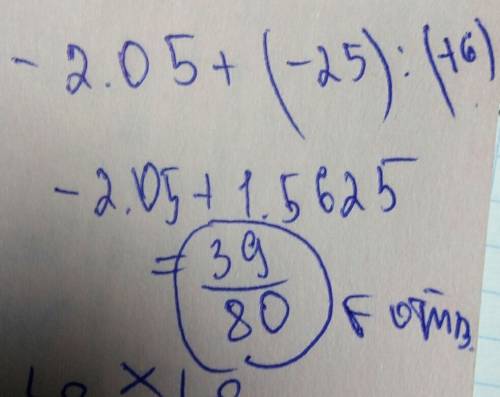 -2.05+(-25):(-16)
-2.05+1.5625
=39/80